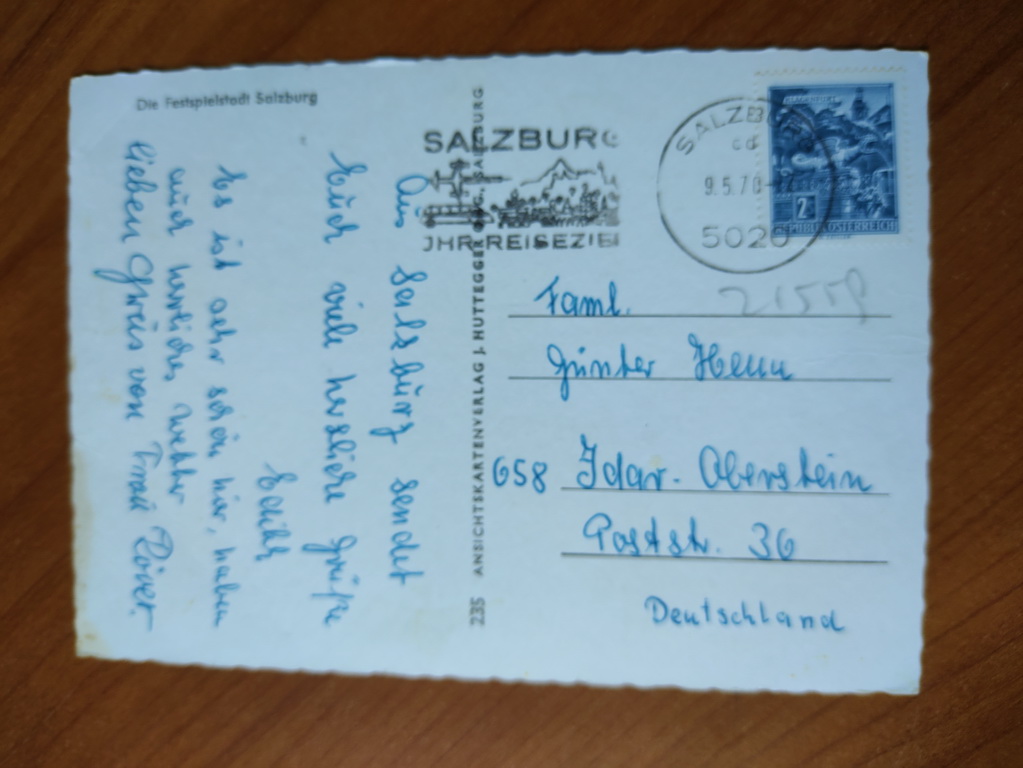 Die Festspielstadt Salzburg
Aus Salzburg sendet
Euch viele herzliche Grüße
Es ist sehr schön hier, haben
auch herrliches Wetter
lieben Grüss von
235 ANSICHTSKARTENVERLAG J. HUTTEGGER SALZBURG
SALZBURG
IHR REISEZIEL
SALZBURG
9.5.70
5020
KLAGENFURT
2
REPUBLIK ÖSTERREICH
21559
Faml.
Günter Henn
658 Idar-Oberstein
Poststr. 36
Deutschland